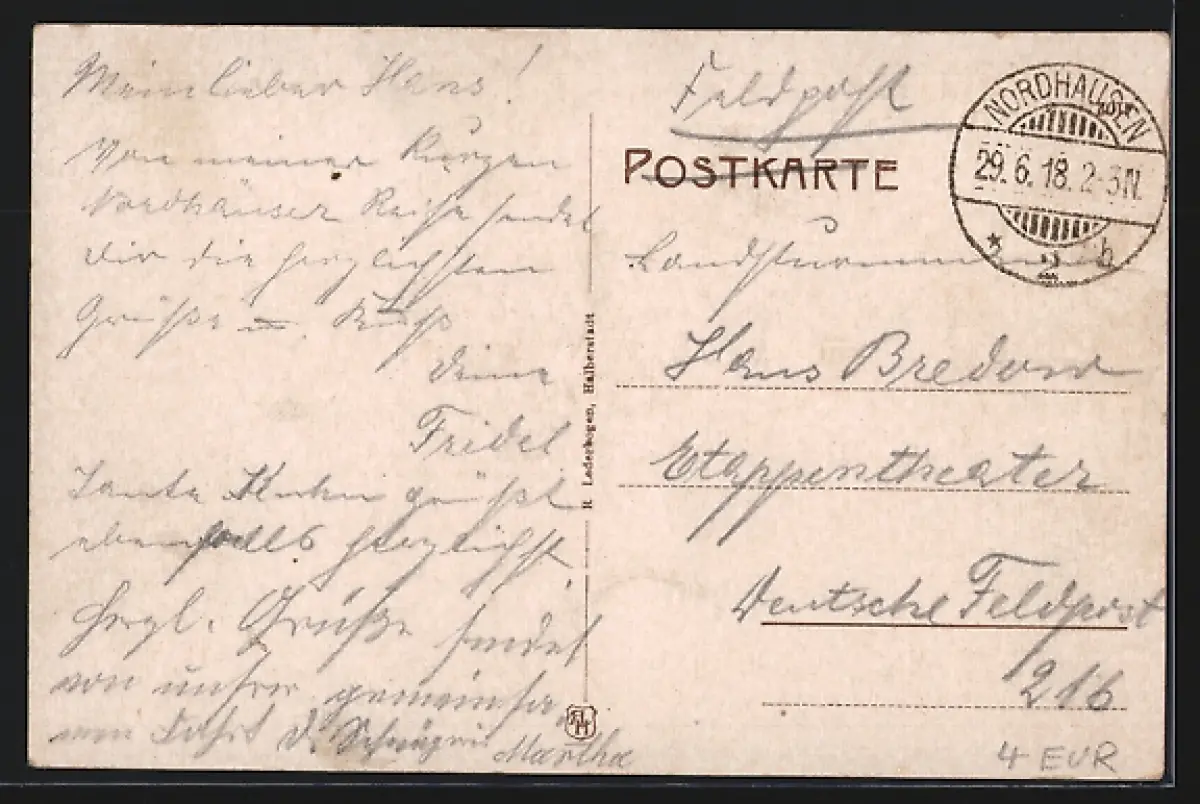 Mein lieber Hans!
Von meiner kurzen
Nordhäuser Reise sendet
dir die herzlichsten
Grüße u. Kuß
deine
Fridel
Tante grüßt
ebenfalls herzlichst.
Herzl. Grüße sendet
von unsrer gemeinsa
men Fahrt d. Schwägerin
Martha
R. Lederbogen, Halberstadt
Feldpost
POSTKARTE
NORDHAUSEN
29.6.18.2-3N.
* 2 b
Landsturmmann
Hans Bredow
Etappentheater
Deutsche Feldpost
216
4 EUR